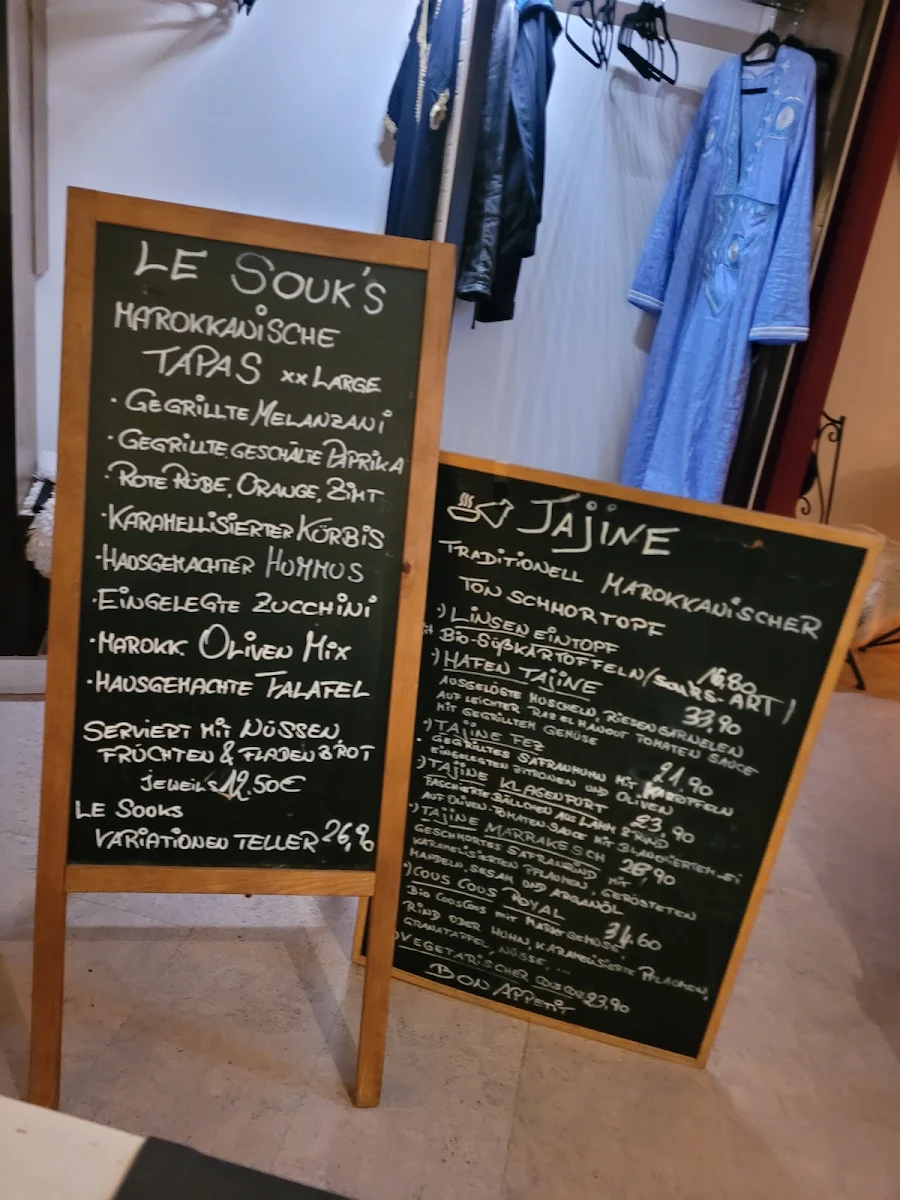 LE SOUK'S
MAROKKANISCHE
TAPAS XXLARGE
· GEGRILLTE MELANZANI
· GEGRILLTE GESCHÄLTE PAPRIKA
· ROTE RÜBE, ORANGE, ZIMT
· KARAMELLISIERTER KÜRBIS
· HAUSGEMACHTER HUMMUS
· EINGELEGTE ZUCCHINI
· MAROKK. OLIVEN MIX
· HAUSGEMACHTE FALAFEL
SERVIERT MIT NÜSSEN,
FRÜCHTEN & FLADENBROT
jeweils 12.50€
LE SOUKS
VARIATIONEN TELLER 26,90
TAJINE
TRADITIONELL MAROKKANISCHER
TON SCHMORTOPF
·) LINSEN EINTOPF 16,80
BIO-SÜßKARTOFFELN/SOUKS-ART)
·) HAFEN TAJINE 33,90
AUSGELÖSTE MUSCHELN, RIESENGARNELEN
AUF LEICHTER RAZ EL HANOUT TOMATEN SAUCE
MIT GEGRILLTEM GEMÜSE
·) TAJINE FEZ 21,90
GEGRILLTES SAFRANHUHN MIT KARTOFFELN
EINGELEGTEN ZITRONEN UND OLIVEN
·) TAJINE KLAGENFURT 23,90
FASCHIERTE BÄLLCHEN AUS LAMM & RIND
AUF OLIVEN-TOMATEN-SAUCE MIT BLANCHIERTEM EI
·) TAJINE MARRAKESCH 26,90
GESCHMORTES SAFRANRIND MIT
KARAMELISIERTEN PFLAUMEN, GERÖSTETEN
MANDELN, SESAM UND ARGANÖL
·) COUS COUS ROYAL 34,60
BIO COUSCOUS MIT MARKTGEMÜSE,
RIND ODER HUHN, KARAMELISIERTE PFLAUMEN,
GRANATAPFEL, NÜSSE, ...
·) VEGETARISCHER COUSCOUS 23,90
BON APPETIT